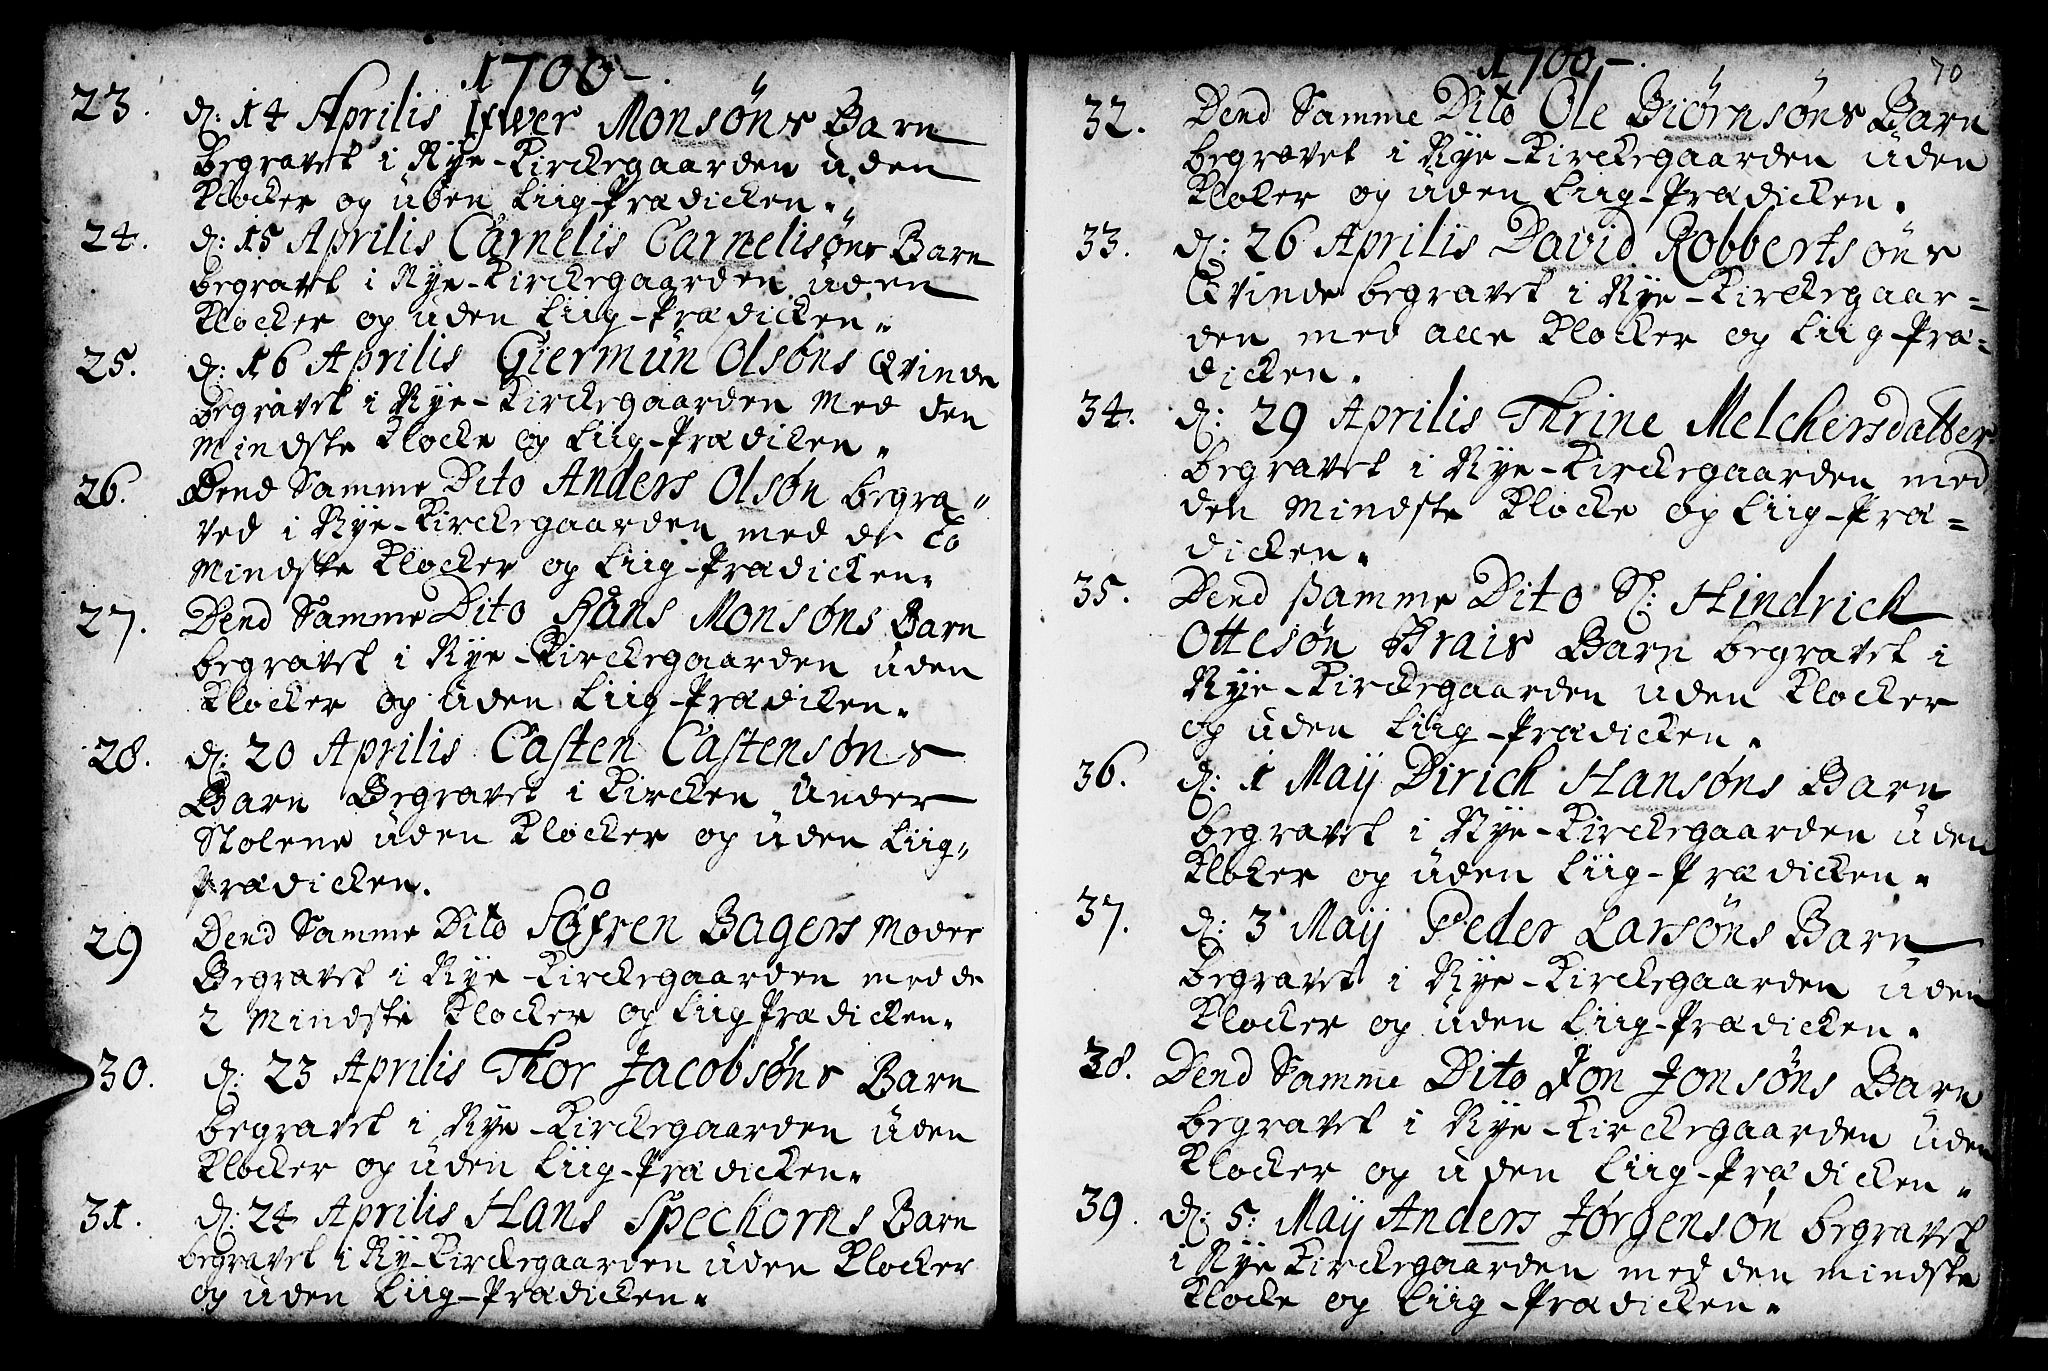 1700.
23. d: 14 Aprilis Ifwer Monsøns Barn
begravet i Nÿe-Kirckegaarden uden
Klocker og uden Liig-Prædicken.
24. d: 15 Aprilis Carnelis Carnelisøns Barn
begravet i Nÿe-Kirckegaarden uden
Klocker og uden Liig-Prædicken.
25. d: 16 Aprilis Giermun Olsøns Qvinde
begravet i Nÿe-Kirckegaarden Med den
Mindste Klocke og Liig-Prædiken.
26. Dend Samme Dito Anders Olsøn begra
ved i Nÿe-Kirckegaarden med de to
Mindste Klocker og Liig-Prædicken.
27. Dend Samme Dito Hans Monsøns Barn
begravet i Nÿe-Kirckegaarden uden
Klocker og uden Liig-Prædiken.
28. d: 20 Aprilis Casten Castensøns
Barn Begravet i Kircken Under
Stolene uden Klocker og uden Liig-
Prædicken.
29 Dend Samme Dito Søfren Bagers Moder
Begravet i Nÿe-Kirckegaarden med de
2 Mindste Klocker og Liig Prædicken.
30. d: 23 Aprilis Thor Jacobsøns Barn
begravet i Nÿe-Kirckegaarden uden
Klocker og uden Liig-Prædicken.
31. d: 24 Aprilis Hans Spechorns Barn
begravet i Nÿ-Kirckegaarden uden Klocker
og uden Liig-Prædicken.
1700. 70
32. Dend Samme Dito Ole Biørnsøns Barn
begravet i Nÿe-Kirckegaarden uden
Kloker og uden Liig-Prædicken.
33. d: 26 Aprilis David Robbertsøns
Qvinde begravet i Nÿe-Kirckegaar=
den med alle Klocker og Liig-Præ=
dicken.
34. d: 29 Aprilis Thrine Melchersdatter
begravet i Nÿe-Kirckegaarden med
den Mindste Klocke og Liig-Præ=
dicken.
35. Dend samme Dito S: Hindrich
Ottesøn Brais Barn begravet i
Nÿe-Kirckegaarden uden Klocker
og uden Liig-Prædicken.
36. d: 1 Maÿ Dirich Hansøns Barn
begravet i Nÿe-Kirckegaarden uden
Kloker og uden Liig-Prædicken.
37. d: 3 Maÿ Peder Larsøns Barn
begravet i Nÿe-Kirckegaarden uden
Klocker og uden Liig-Prædicken.
38. Dend Samme Dito Jon Jonsøns Barn
begravet i Nÿe-Kirckegaarden uden
Klocker og uden Liig-Prædicken.
39. d: 5: Maÿ Anders Jørgensøn begravet
i Nÿe Kirckegaarden med den mindste
Klocke og Liig-Prædicken.